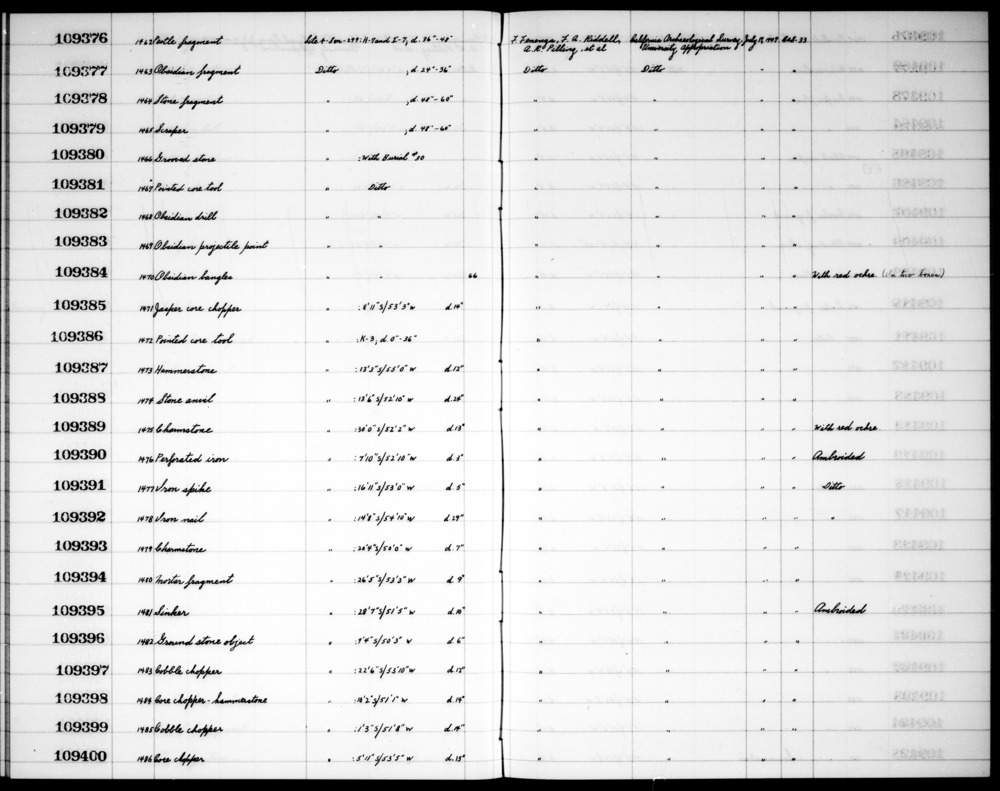 109376 1462 Pestle fragment Site 4-Son-299: H-7 and I-7, d. 36"-48" F. Fenenga, F. A. Riddell, California Archaeological Survey, July 19, 1949 Acc. 33
A. R. Pilling, et al University Appropriation
109377 1463 Obsidian fragment Ditto ; d. 24"-36" Ditto Ditto " "
109378 1464 Stone fragment " ; d. 48"-60" " " " "
109379 1465 Scraper " ; d. 48"-60" " " " "
109380 1466 Grooved stone " : With Burial #30 " " " "
109381 1467 Pointed core tool " Ditto " " " "
109382 1468 Obsidian drill " " " " " "
109383 1469 Obsidian projectile point " " " " " "
109384 1470 Obsidian bangles " " 66 " " " " With red ochre (in two boxes)
109385 1471 Jasper core chopper " : 8'11"S/53'3"W d. 14" " " " "
109386 1472 Pointed core tool : K-3; d. 0"-36" " " " "
109387 1473 Hammerstone " : 13'3"S/55'0"W d. 12" " " " "
109388 1474 Stone anvil " : 13'6"S/52'10"W d. 24" " " " "
109389 1475 Charmstone " : 30'0"S/52'2"W d. 13" " " " " With red ochre
109390 1476 Perforated iron " : 7'10"S/52'10"W d. 3" " " " " Ambroided
109391 1477 Iron spike " : 16'11"S/53'0"W d. 5" " " " " Ditto
109392 1478 Iron nail " : 14'8"S/54'10"W d. 29" " " " " "
109393 1479 Charmstone " : 20'4"S/50'0"W d. 7" " " " "
109394 1480 Mortar fragment " : 26'5"S/53'3"W d. 9" " " " "
109395 1481 Sinker " : 28'7"S/51'5"W d. 10" " " " " Ambroided
109396 1482 Ground stone object " : 9'4"S/50'3"W d. 6" " " " "
109397 1483 Cobble chopper " : 22'6"S/53'10"W d. 12" " " " "
109398 1484 Core chopper-hammerstone " : 18'2"S/51'1"W d. 14" " " " "
109399 1485 Cobble chopper " : 1'3"S/51'8"W d. 14" " " " "
109400 1486 Core chopper " : 5'11"S/53'5"W d. 15" " " " "